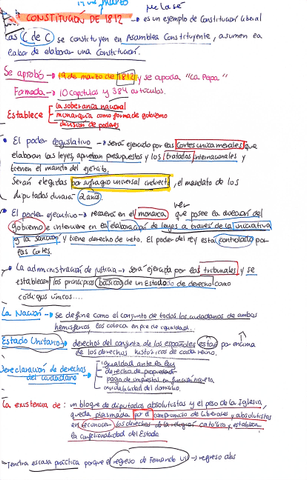 12 de marzo
CONSTITUCIÓN DE 1812 → es un ejemplo de Constitución liberal
las C de C se constituyen en Asamblea Constituyente, asumen la
labor de elaborar una Constitución.
Se aprobó → 19 de marzo de 1812 y se apoda "La Pepa."
Formada → 10 capítulos y 384 artículos.
la soberanía nacional
Establece monarquía como forma de gobierno
división de poderes
El poder legislativo → será ejercido por las Cortes unicamerales que
elaboran las leyes, aprueban presupuestos y los tratados internacionales y
tienen el mando del ejército.
Serán elegidas por sufragio universal indirecto, el mandato de los
diputados durará 2 años
El poder ejecutivo → recaerá en el monarca que posee la dirección del
gobierno e interviene en la elaboración de leyes a través de la iniciativa
y la sanción y tiene derecho de veto. El poder del rey está controlado por
las Cortes.
La administración de justicia → será ejercida por los tribunales y se
establecen los principios básicos de un Estado de derecho como
códigos únicos....
La Nación → se define como el conjunto de todos los ciudadanos de ambos
hemisferios. los colocan en pie de igualdad.
Estado Unitario → derechos del conjunto de los españoles están por encima
de los derechos históricos de cada reino.
igualdad ante la ley
Declaración de derechos derecho de propiedad
del ciudadano pago de impuestos en función renta
inviolabilidad del domicilio.
La existencia de: un bloque de diputados absolutistas y el peso de la Iglesia,
queda plasmada por el compromiso de liberales y absolutistas
en reconoce los derechos de la religión católica y establece
la confesionalidad del Estado
tendrá escasa práctica porque el regreso de Fernando VII → regreso abs